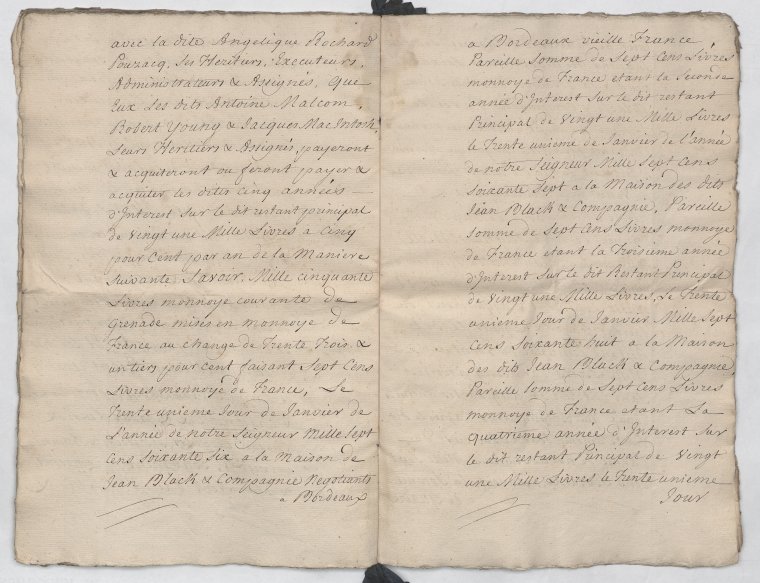 avec la dite Angelique Rochard
Pouzacq, Ses Heritiers, Executeurs,
Administrateurs & Assignés, Que
Eux Ses dits Antoine Malcom,
Robert Young & Jacques MacIntosh,
Leurs Heritiers & Assignés, payeront
& acquiteront ou feront payer &
acquiter les dites cinq années
d'Interest sur le dit restant principal
de Vingt une Mille Livres a Cinq
pour Cent par an de la Maniere
Suivante Savoir, Mille cinquante
Livres monnoye courante de
Grenade mises en monnoye de
France au change de Trente Trois &
un tiers pour cent faisant Sept Cens
Livres monnoye de France, Le
Trente unieme Jour de Janvier de
L'année de notre Seigneur Mille Sept
Cens Soixante Six a la Maison de
Jean Black & Compagnie Negotiants
a Bordeaux
a Bordeaux vieille France
Pareille Somme de Sept Cens Livres
monnoye de France etant la Seconde
année d'Interest Sur le dit restant
Principal de Vingt une Mille Livres
le Trente unieme de Janvier de l'année
de notre Seigneur Mille Sept Cens
Soixante Sept a la Maison des dits
Jean Black & Compagnie, Pareille
Somme de Sept Cens Livres monnoye
de France etant la Troisieme année
d'Interest Sur le dit Restant Principal
de Vingt une Mille Livres, Le Trente
unieme Jour de Janvier Mille Sept
Cens Soixante huit a la Maison
des dits Jean Black & Compagnie
Pareille Somme de Sept Cens Livres
monnoye de France etant La
Quatrieme année d'Interest Sur
le dit restant Principal de Vingt
une Mille Livres le Trente unieme
Jour